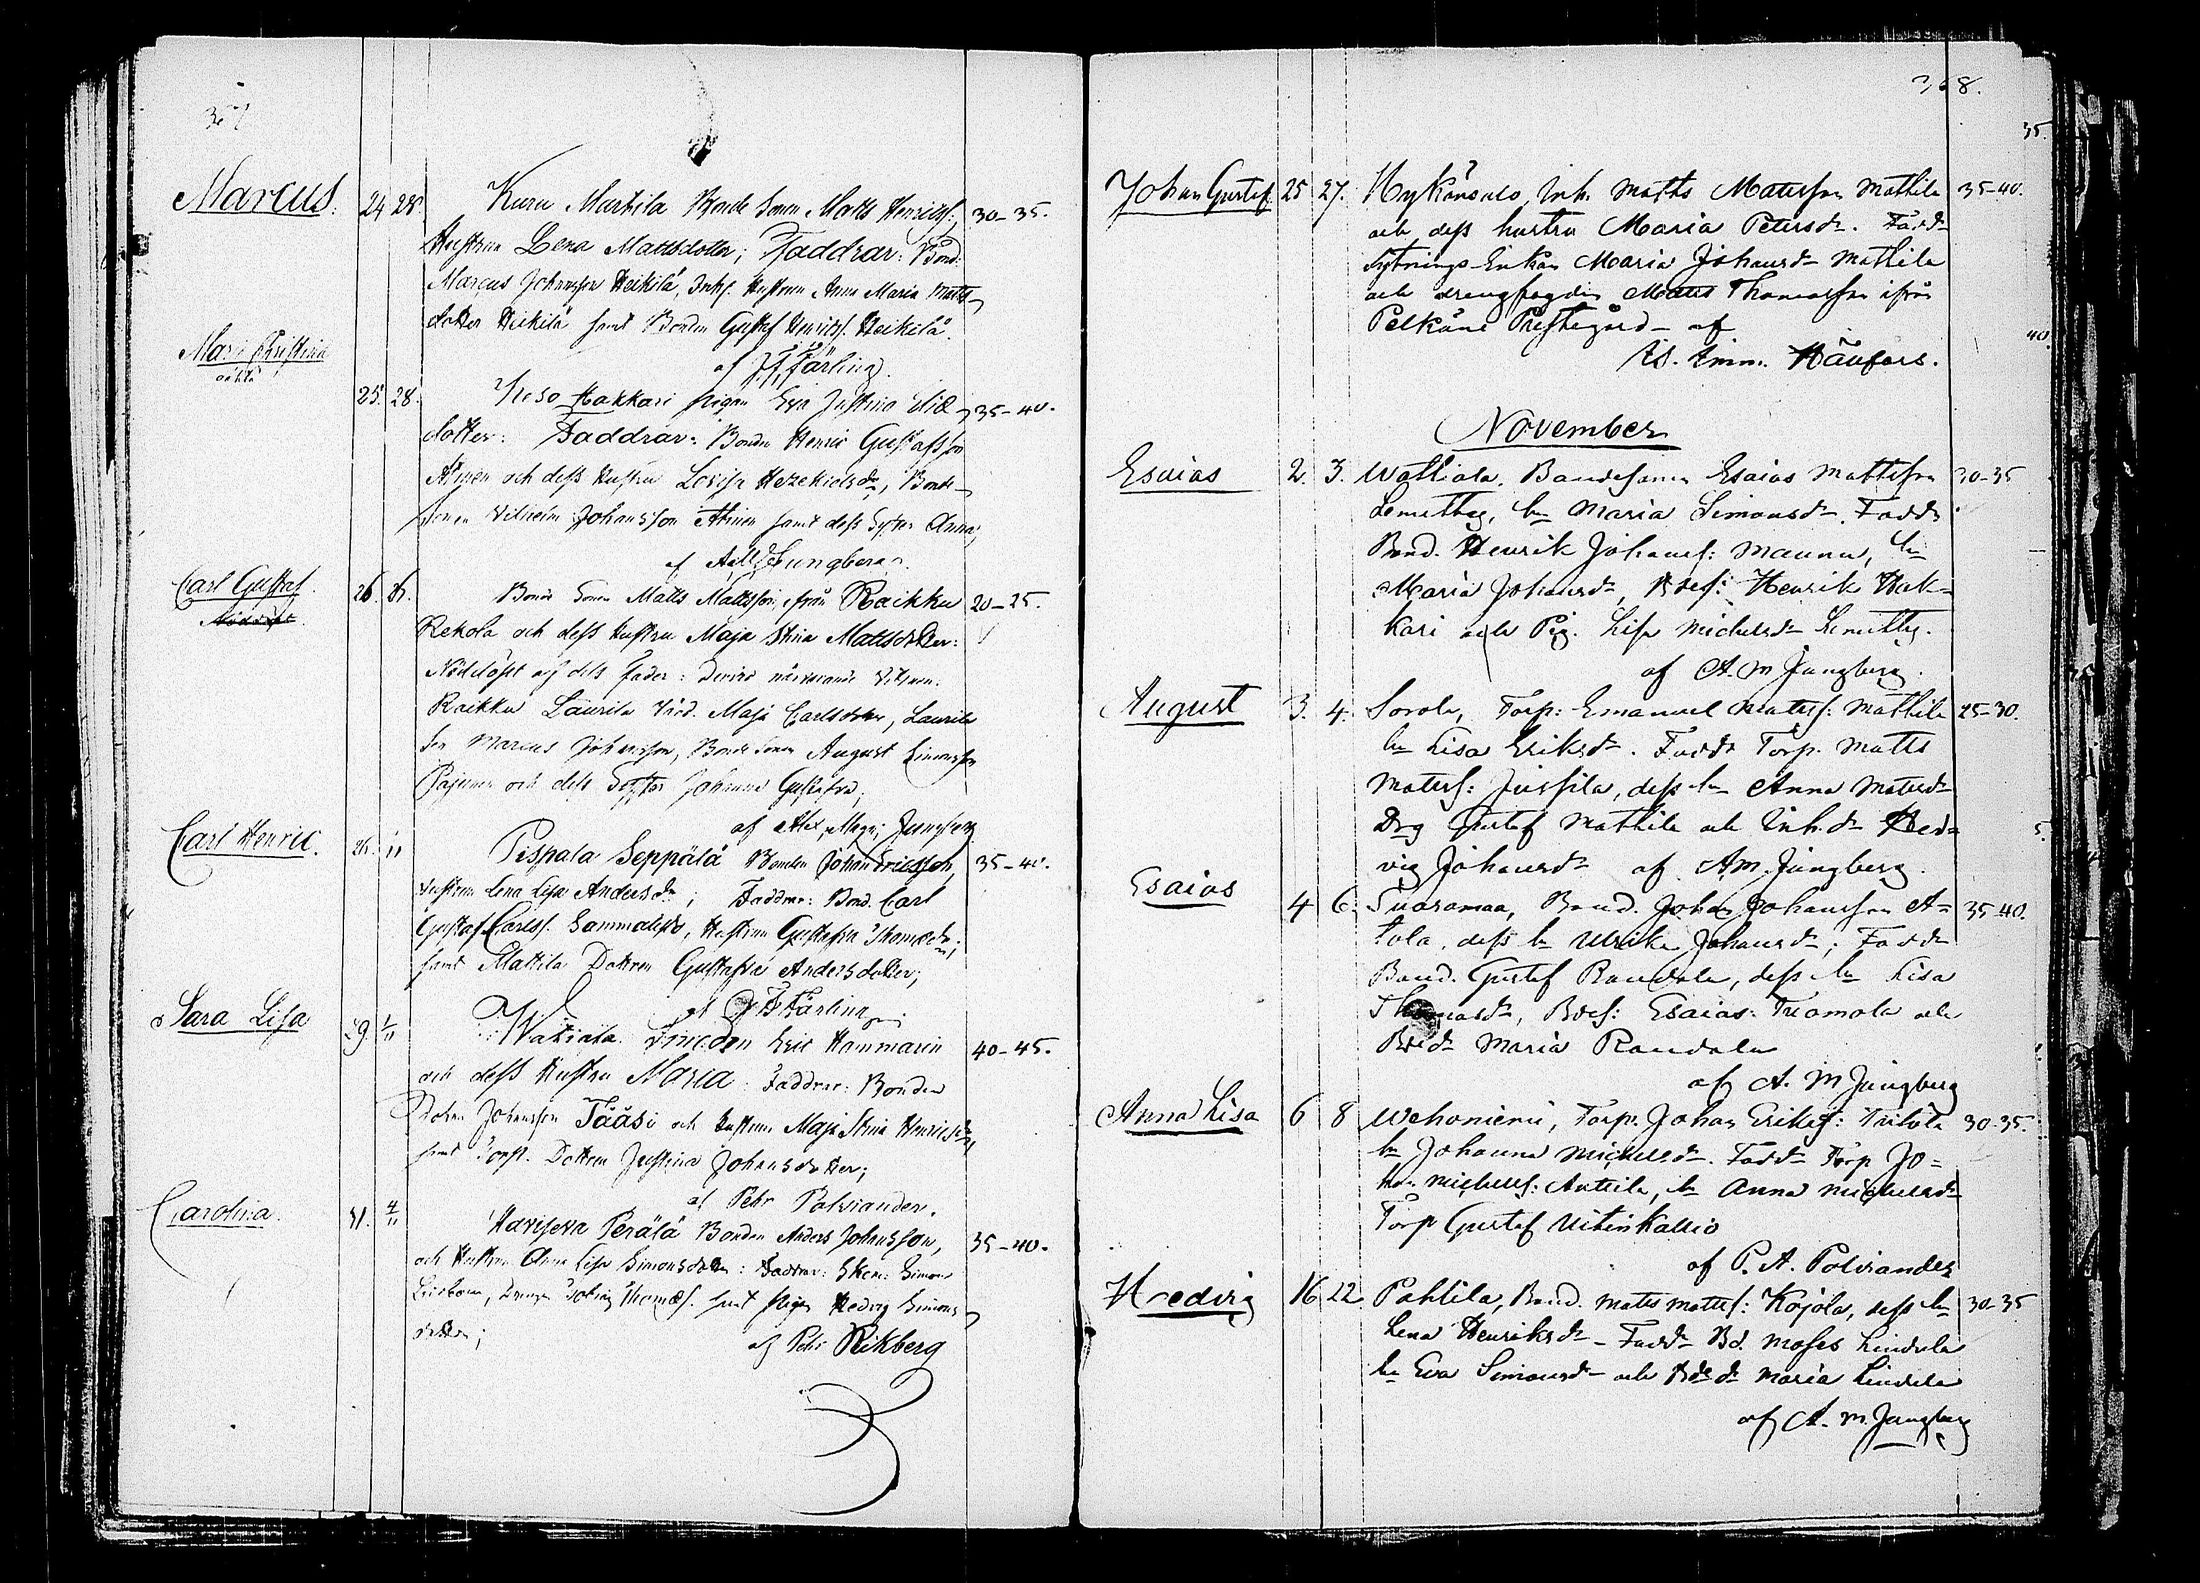 357
Marcus. 24 28. Kuru Marttila Bonde Sonen Matts Henricss: 30-35.
Hustrun Lena Mattsdotter; Faddrar: Bond:
Marcus Johansson Heikilä, Inhs. Hustrun Anna Maria Matts
dotter Heikilä samt Bonden Gustaf Henricss. Heikilä.
af J. F. Färling.
Maria Christina
oäkta
25. 28. Hakkari pigan Eva Justina Did- 35-40.
dotter: Faddrar: Bonden Henric Gustafsson
och dess Hustru Lovisa Hezekielsdr, Bonde
Sonen Vilhelm Johansson samt dess Syster Anna,
af Jungberg.
Carl Gustaf. 26. Bonde Sonen Matts Mattsson, ifrån Raikku 20-25.
Nöddöpt
Rekola och dess hustru Maja Stina Mattsdotter:
Nöddöpt af dess fader: närvarande Vittnen:
Raikku Laurila Värd. Maja Carlsdotter, Laurila
Son Marcus Johansson, Bonde Sonen August Simonsson
och dess Syster Johanna Gustafva;
af Alex. Magn: Jungberg
Carl Henric. 26. 1/11 Pispala Seppälä Bonden Johan Ericsson, 35-40.
hustrun Lena Lisa Andersdr; Faddrar: Bond. Carl
Gustaf Carlss. Sammalisto, Hustrun Gustafva Thomædr;
samt Mattila Dottren Gustafva Andersdotter;
af J F Färling
Sara Lisa 29. 1/11 Watiala Smeden Eric Hammarin 40-45.
och dess Hustru Maria. Faddrar: Bonden
Johan Johansson Tääsi och hustrun Maja Stina Henricsdr
samt Dottren Justina Johansdotter;
af Petr Polviander.
Carolina. 31. 4/11 Havisevа Perälä Bonden Anders Johansson, 35-40.
och Hustrun Anna Lisa Simonsdotter: Faddrar: Simon
Drengen Tobias Thomæs. samt pigan Hedvig Simons
dotter;
af Petr Rikberg
368.
Johan Gustaf 25 27. Mykänsalo, Inh. Matts Matsson Mattila 35-40.
och dess hustru Maria Petersdr. Faddr
Sytnings Enkan Maria Johansdr Mattila
och drengfogden Matts Thomasson ifrån
Pelkäne Prestegård - af
Is. Imm. Hänfors.
November
Esaias 2. 3. Wattiala. Bondesonen Esaias Mattsson 30-35
Lemetty, hu Maria Simonsdr. Faddr
Bond. Henrik Johanss: Maunu, hu
Maria Johansdr, Bdes: Henrik Hak=
kari och Pig. Lisa Michelsdr Lemetty.
af A. M Jungberg.
August 3. 4. Sorola, Torp: Emanuel Matss: Mattila 25-30.
hu Lisa Eriksdr. Faddr Torp. Matts
Matss: Jussila, dess hu Anna Matsdr
Drg Gustaf Mattila och Inh. dr Hed=
vig Johansdr af A. M. Jungberg.
Esaias 4 6. Suoramaa, Bond. Johan Johansson A= 35-40.
tola, dess hu Ulrika Johansdr; Faddr
Bond. Gustaf Rondola, dess hu Lisa
Thomasdr, Bdes: Esaias och
Bdedr Maria Rondola
af A. M Jungberg
Anna Lisa 6 8 Wehoniemi, Torp. Johan Eriks: 30-35.
hu Johanna Michelsdr. Faddr Torp Jo=
han Michels: Anttila, hu Anna Michelsdr
Torp Gustaf Uitinkallio
af P. A. Polviander
Hedvig 16 22 Pohtila, Bond. Mats Matts: Kojola, dess hu 30-35
Lena Henriksdr - Faddr Bd. Moses Lindula
hu Eva Simonsdr och Bdedr Maria Lindula
af A. M. Jungberg